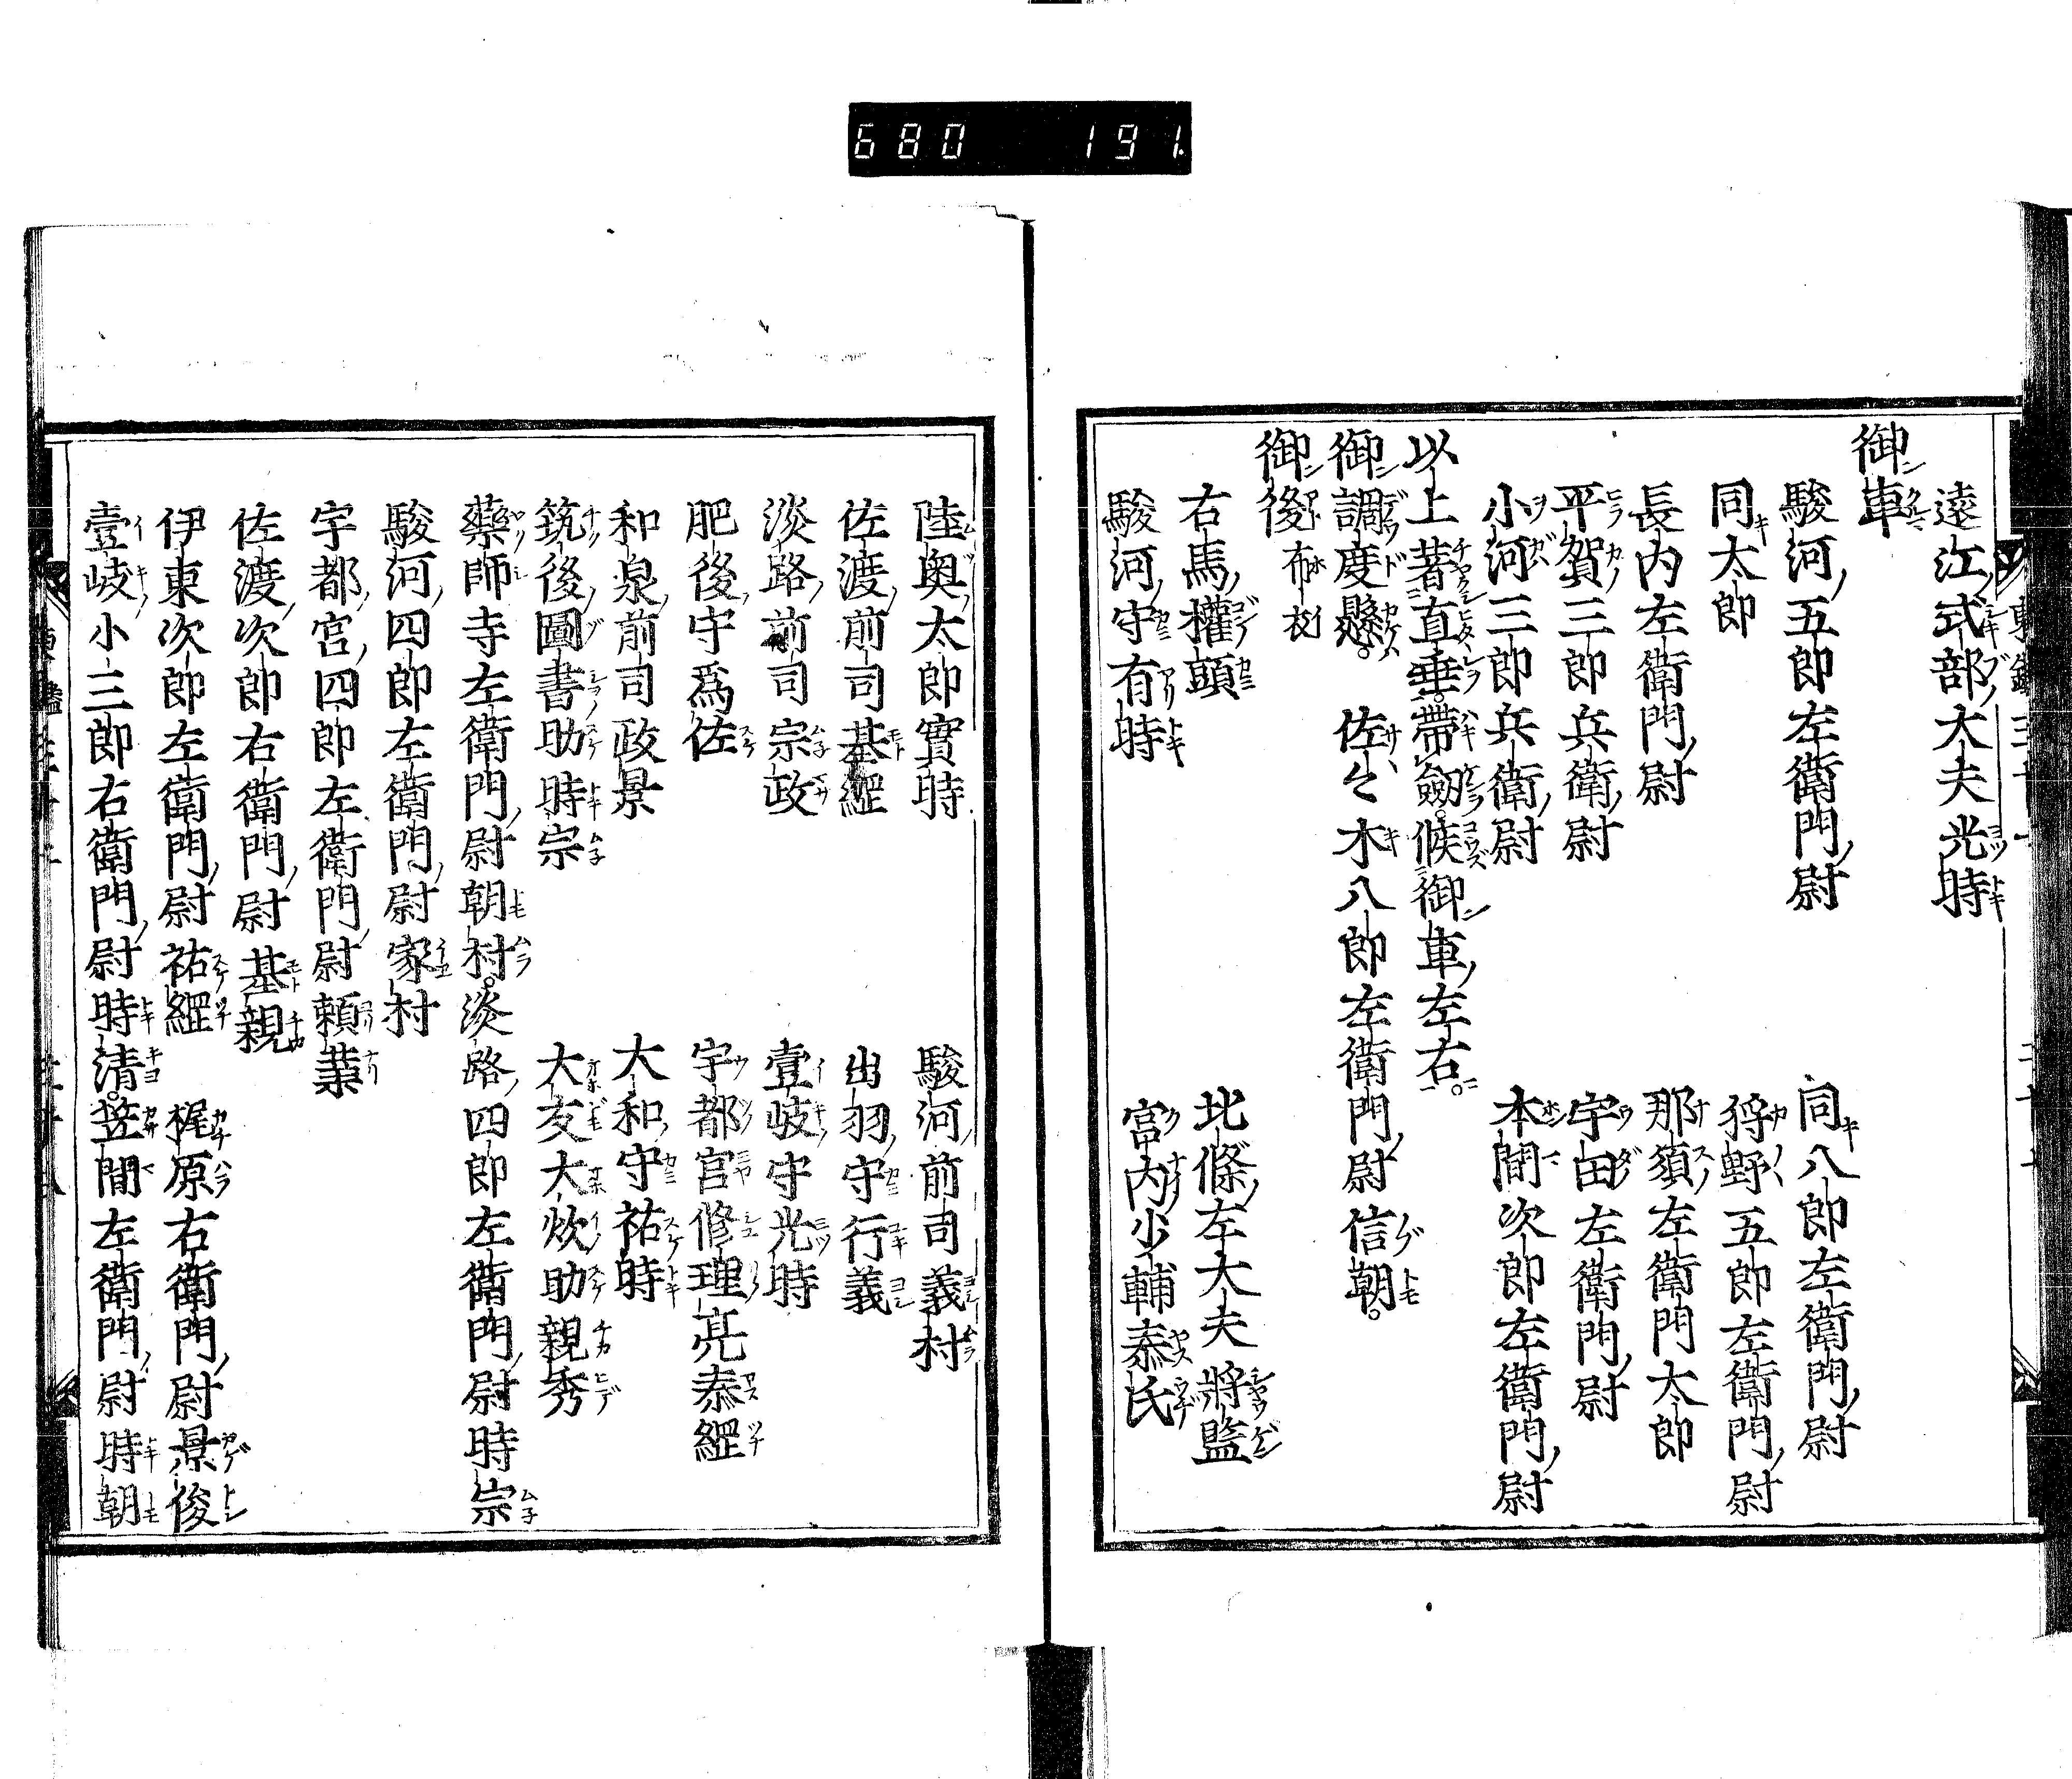 680 191.
遠江式部大夫光時
御車
駿河五郎左衛門尉 同八郎左衛門尉
同太郎 狩野五郎左衛門尉
長内左衛門尉 那須左衛門太郎
平賀三郎兵衛尉 宇田左衛門尉
小河三郎兵衛尉 本間次郎左衛門尉
以上著直垂。帶劔。候御車左右。
御調度懸。 佐々木八郎左衛門尉信朝。
御後布衣
右馬權頭 北條左大夫將監
駿河守有時 宮内少輔泰氏
陸奥太郎實時 駿河前司義村
佐渡前司基綱 出羽守行義
淡路前司宗政 壹岐守光時
肥後守爲佐 宇都宮修理亮泰綱
和泉前司政景 大和守祐時
筑後圖書助時宗 大友大炊助親秀
藥師寺左衛門尉朝村。淡路四郎左衛門尉時宗
駿河四郎左衛門尉家村
宇都宮四郎左衛門尉頼業
佐渡次郎右衛門尉基親
伊東次郎左衛門尉祐經 梶原右衛門尉景俊
壹岐小三郎右衛門尉時清。笠間左衛門尉時朝